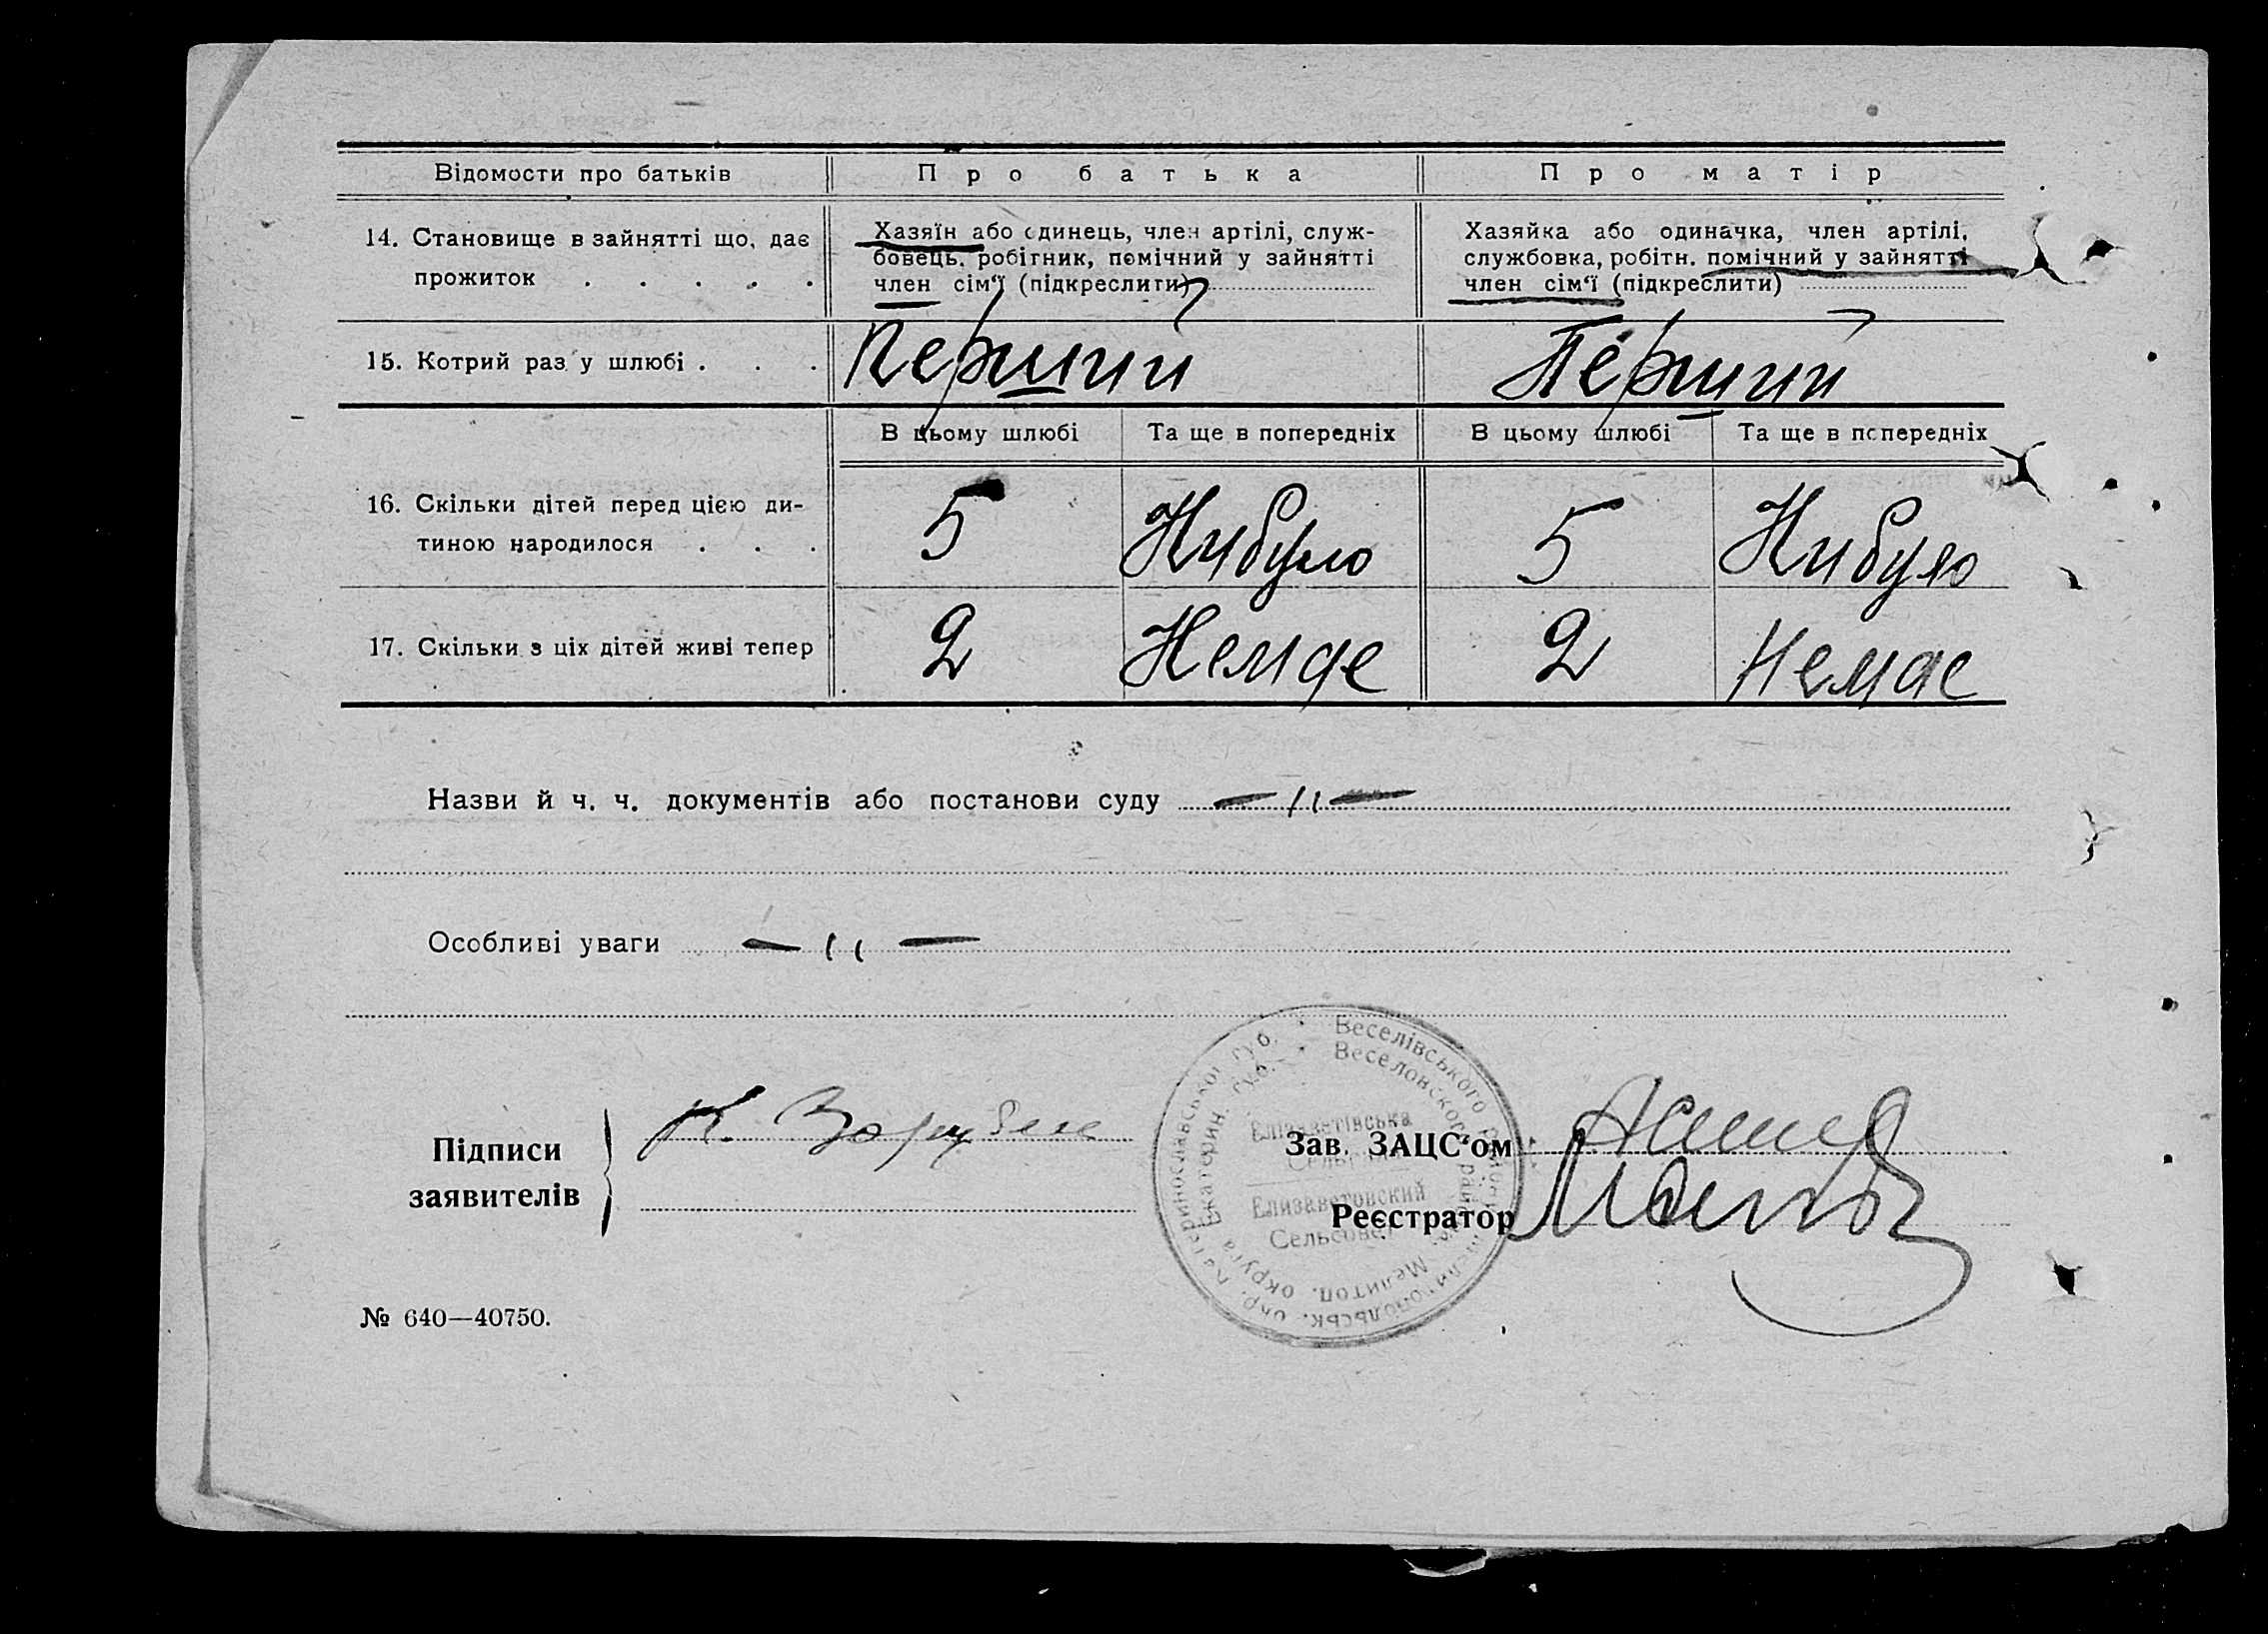 Відомости про батьків Про батька Про матір
14. Становище в зайнятті що, дає прожиток . . . . .
Хазяїн або одинець, член артілі, служ-
бовець, робітник, помічний у зайнятті
член сім'ї (підкреслити)
Хазяйка або одиначка, член артілі,
службовка, робітн. помічний у зайнятті
член сім'ї (підкреслити)
15. Котрий раз у шлюбі . . . Перший Перший
В цьому шлюбі Та ще в попередніх В цьому шлюбі Та ще в попередніх
16. Скільки дітей перед цією ди-
тиною народилося . . . 5 Нибуло 5 Нибуло
17. Скільки з ціх дітей живі тепер 2 Немає 2 Немає
Назви й ч. ч. документів або постанови суду — ıı —
Особливі уваги — ıı —
Підписи
заявителів
К.
Зав. ЗАЦС'ом
Реєстратор
Веселівського району Мелітопольськ. окр. Катеринославської губ.
Веселовского района Мелитоп. округа Екатерин. губ.
Єлізаветівська
Сельрада
Елизаветовский
Сельсовет
№ 640—40750.